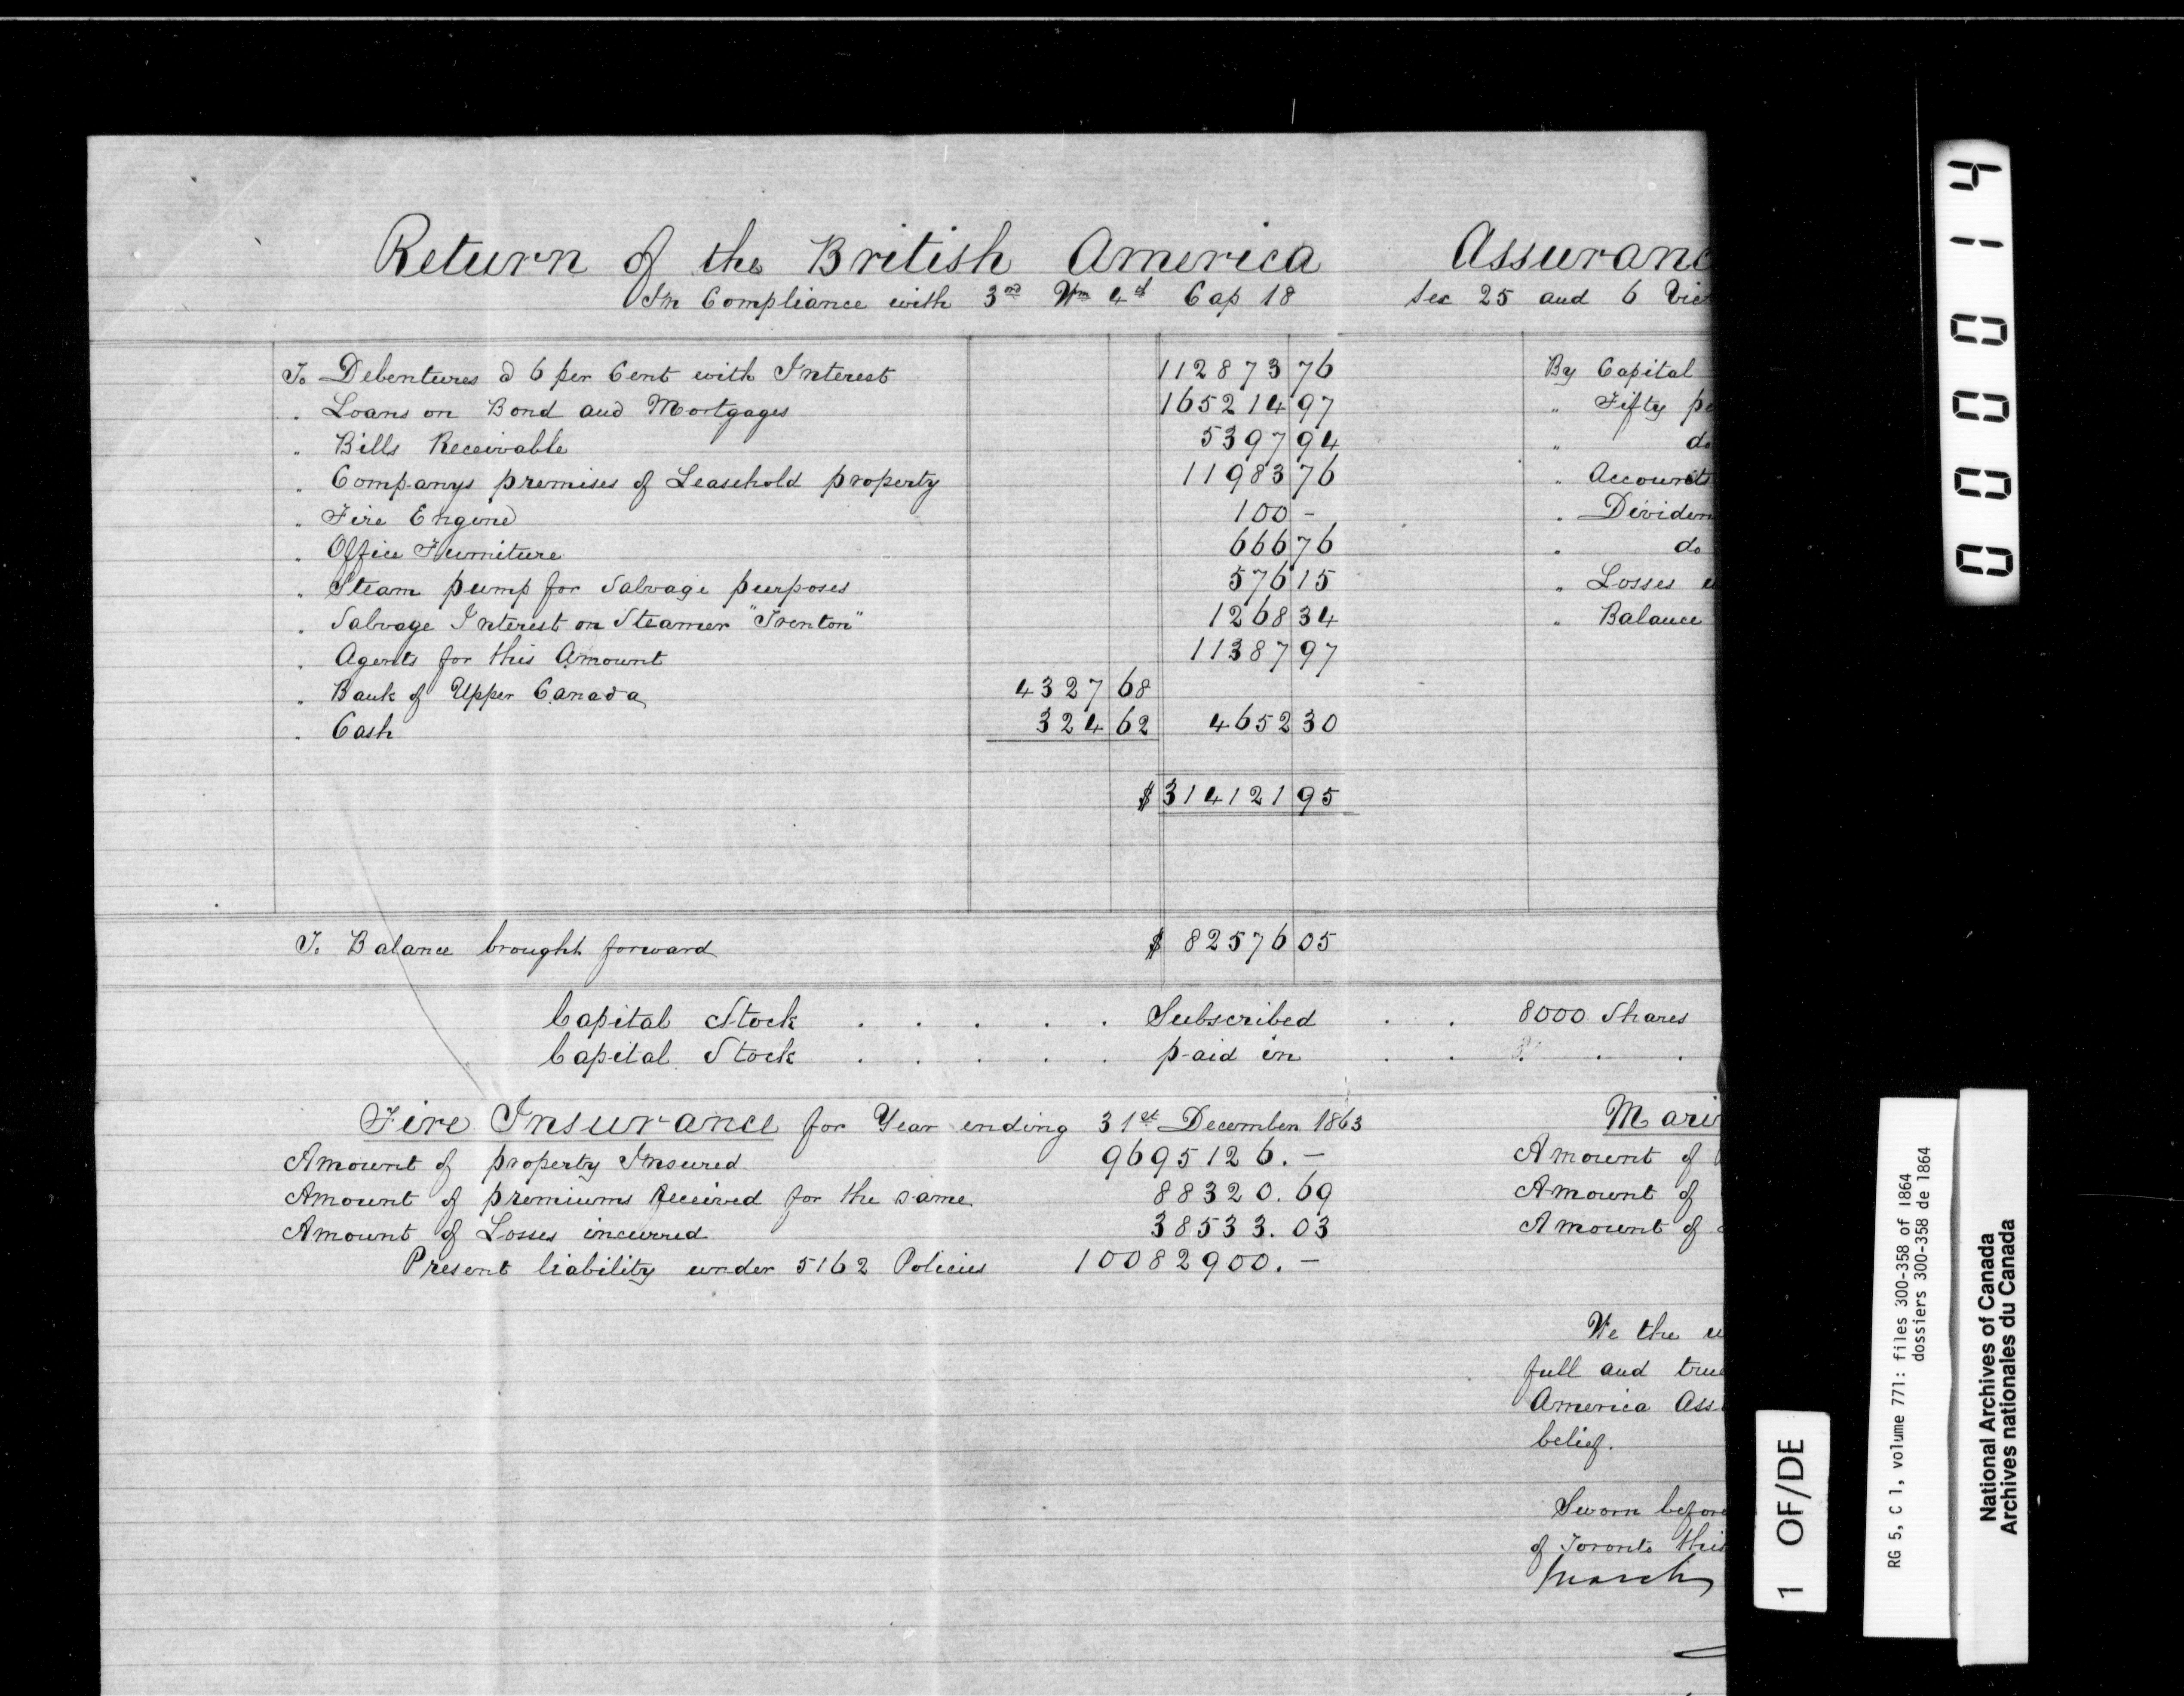 Return of the British America Assuranc
In Compliance with 3rd Wm 4th Cap 18 Sec 25 and 6 Vict
To Debentures @ 6 per Cent with Interest 112873 76 By Capital
" Loans on Bond and Mortgages 165214 97 " Fifty pe
" Bills Receivable 5397 94 " do
" Companys premises of Leasehold property 11983 76 " Accounts
" Fire Engine 100 - " Dividen
" Office Furniture 666 76 " do
" Steam pump for Salvage purposes 576 15 " Losses u
" Salvage Interest on Steamer "Trenton" 1268 34 " Balance
" Agents for this Amount 11387 97
" Bank of Upper Canada 4327 68
" Cash 324 62 4652 30
$ 314121 95
To Balance brought forward $ 82576 05
Capital Stock . . . . . Subscribed . . 8000 Shares
Capital Stock . . . . . paid in . . . . .
Fire Insurance for Year ending 31st December 1863 Mari
Amount of property Insured 9695126. - Amount of
Amount of premiums Received for the same 88320. 69 Amount of
Amount of Losses incurred 38533. 03 Amount of
Present liability under 5162 Policies 10082900. -
We the u
full and true
America Ass
belief.
Sworn before
of Toronto this
March
000014
1 OF/DE
RG 5, C 1, volume 771: files 300-358 of 1864
dossiers 300-358 de 1864
National Archives of Canada
Archives nationales du Canada